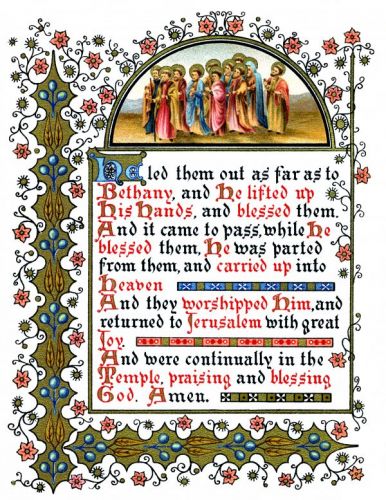 He led them out as far as to
Bethany, and He lifted up
His Hands, and blessed them.
And it came to pass, while He
blessed them, He was parted
from them, and carried up into
heaven
And they worshipped Him, and
returned to Jerusalem with great
Joy.
And were continually in the
Temple, praising and blessing
God. Amen.